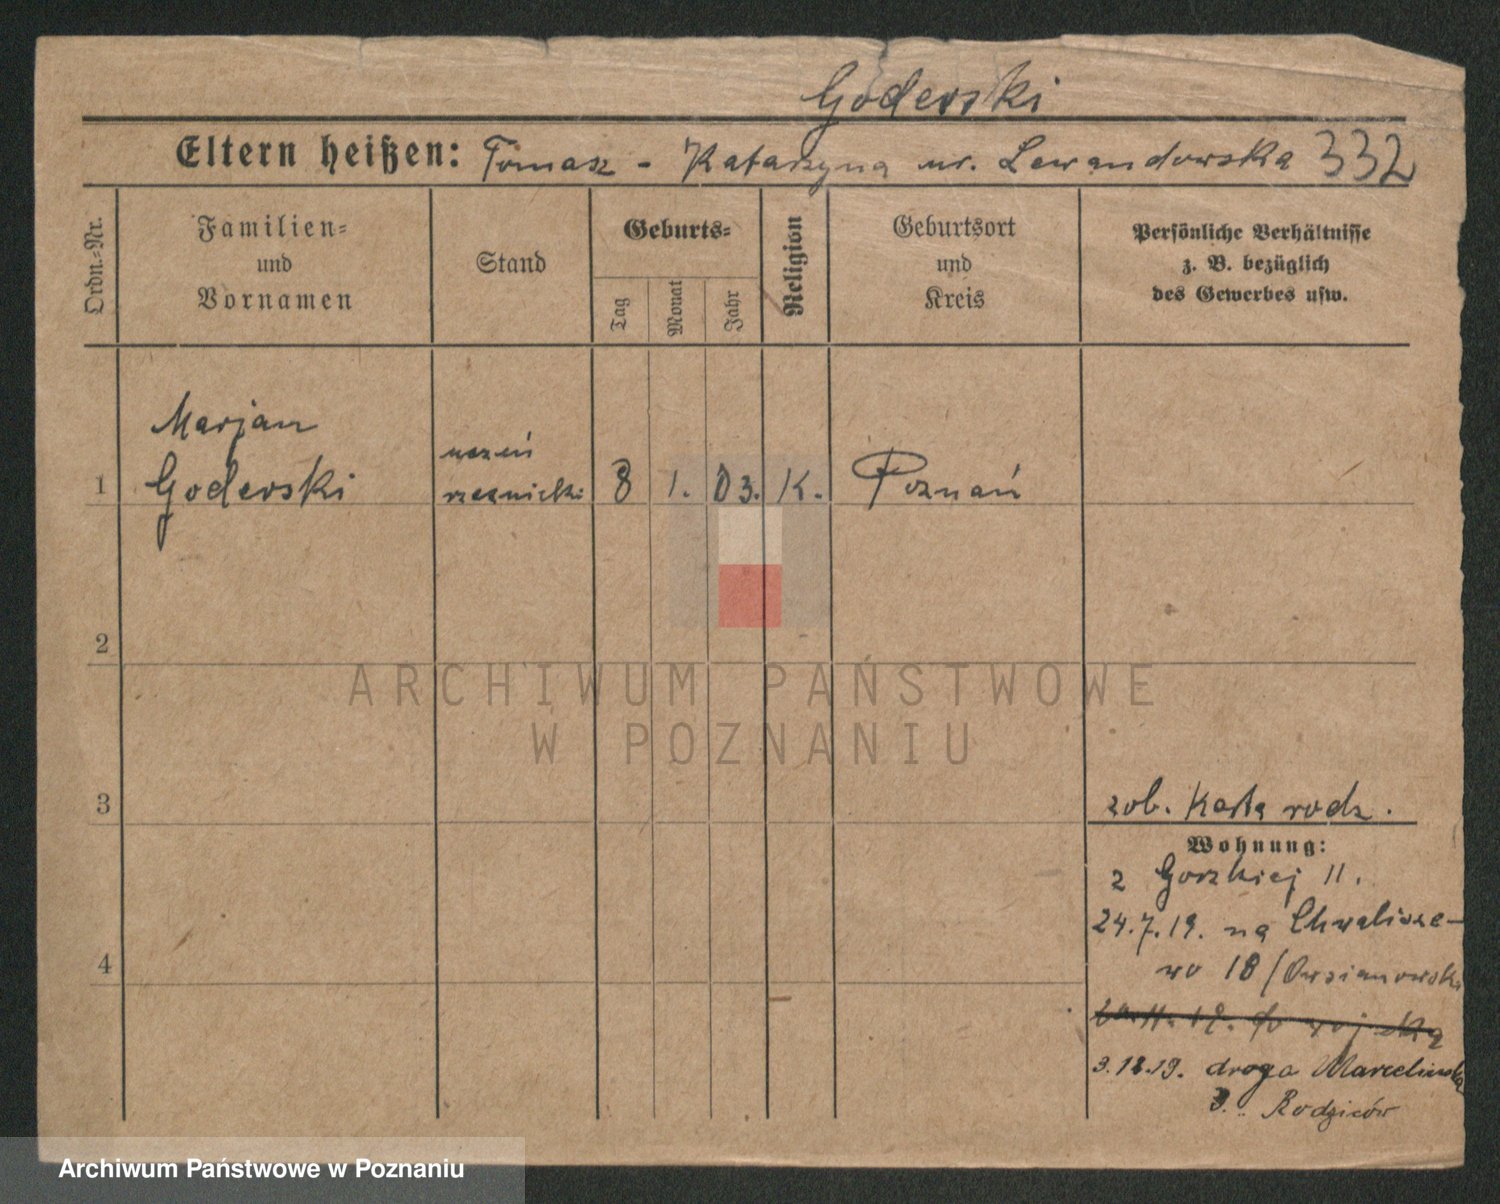 Goderski
Eltern heißen: Tomasz - Katarzyna ur. Lewandowska 332
Ordn.-Nr.
Familien-
und
Vornamen
Stand
Geburts-
Tag
Monat
Jahr
Religion
Geburtsort
und
Kreis
Persönliche Verhältnisse
z. B. bezüglich
des Gewerbes usw.
Marjan
1 Goderski
uczeń
rzeźnicki 8 1. 03. K. Poznań
2
ARCHIWUM PAŃSTWOWE
W POZNANIU
3
zob. Karta rodz.
Wohnung:
2 Gorzkiej 11.
24.7.19. na Chwalisze-
4
wo 18 / Owsianowski
do wojska
3.12.19. droga Marcelińska
3. Rodziców
Archiwum Państwowe w Poznaniu